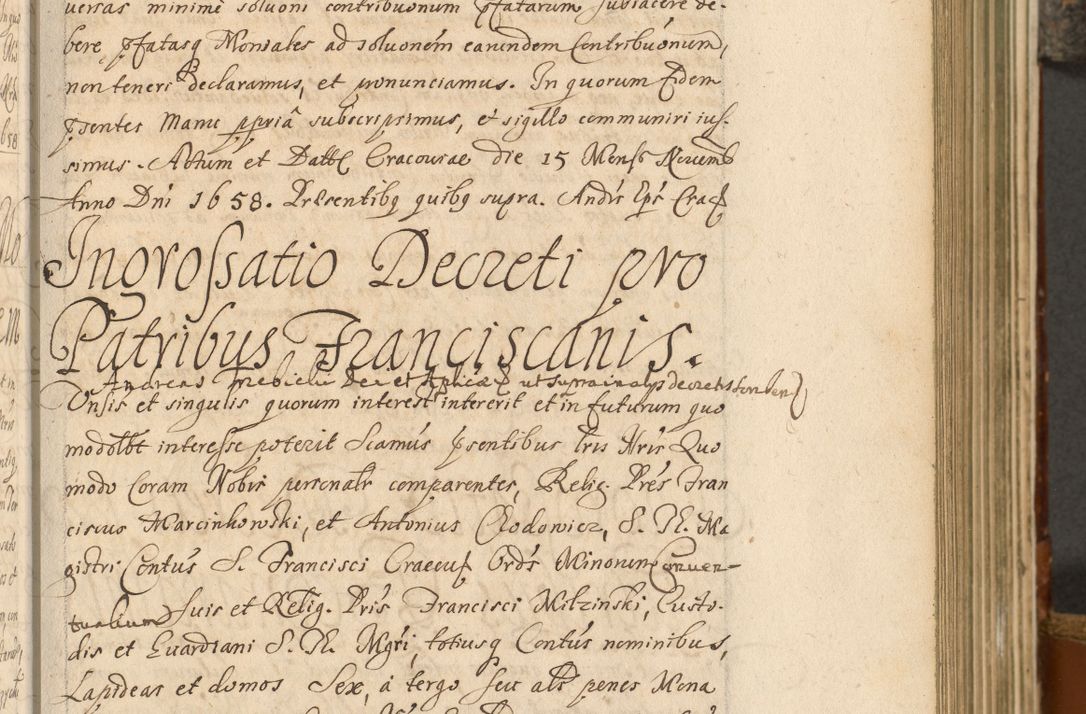 versas minimè solvoni contribuonum pfatarum subiacere de-
bere pfatasq Moniales ad solvoném earundem Contribuonum,
non teneri Declaramus, et pronunciamus. In quorum Fidem
psentes Manu ppriâ subscripsimus, et sigillo communiri ius-
simus. Actum et Datt Cracoviae die 15 Mensis Novemb
Anno Dni 1658. Presentibq quibq supra. Andrs Eps Crac
Ingrossatio Decreti pro
Patribus Franciscanis.
Andreas Trzebicki Dei et Aplicae ut supra in alys decretis
Vnsis et singulis quorum interest intererit et in futurum quo
modolbt interesse poterit Scamus psentibus lris Nris Quo
modo Coram Nobis personalr comparentes, Relig. Pres Fran
ciscus Marcinkowski, et Antonius Clodowicz, S. Th. Ma
gistri Contus S. Francisci Craccu Ords Minorum Conven-
tualium Suis et Relig. Pris Francisci Milzinski, Custo-
dis et Guardiani S. Th. Mgri, totiusq Contus nominibus,
Lapideas et domos Sex, à tergo seu als penes Mona